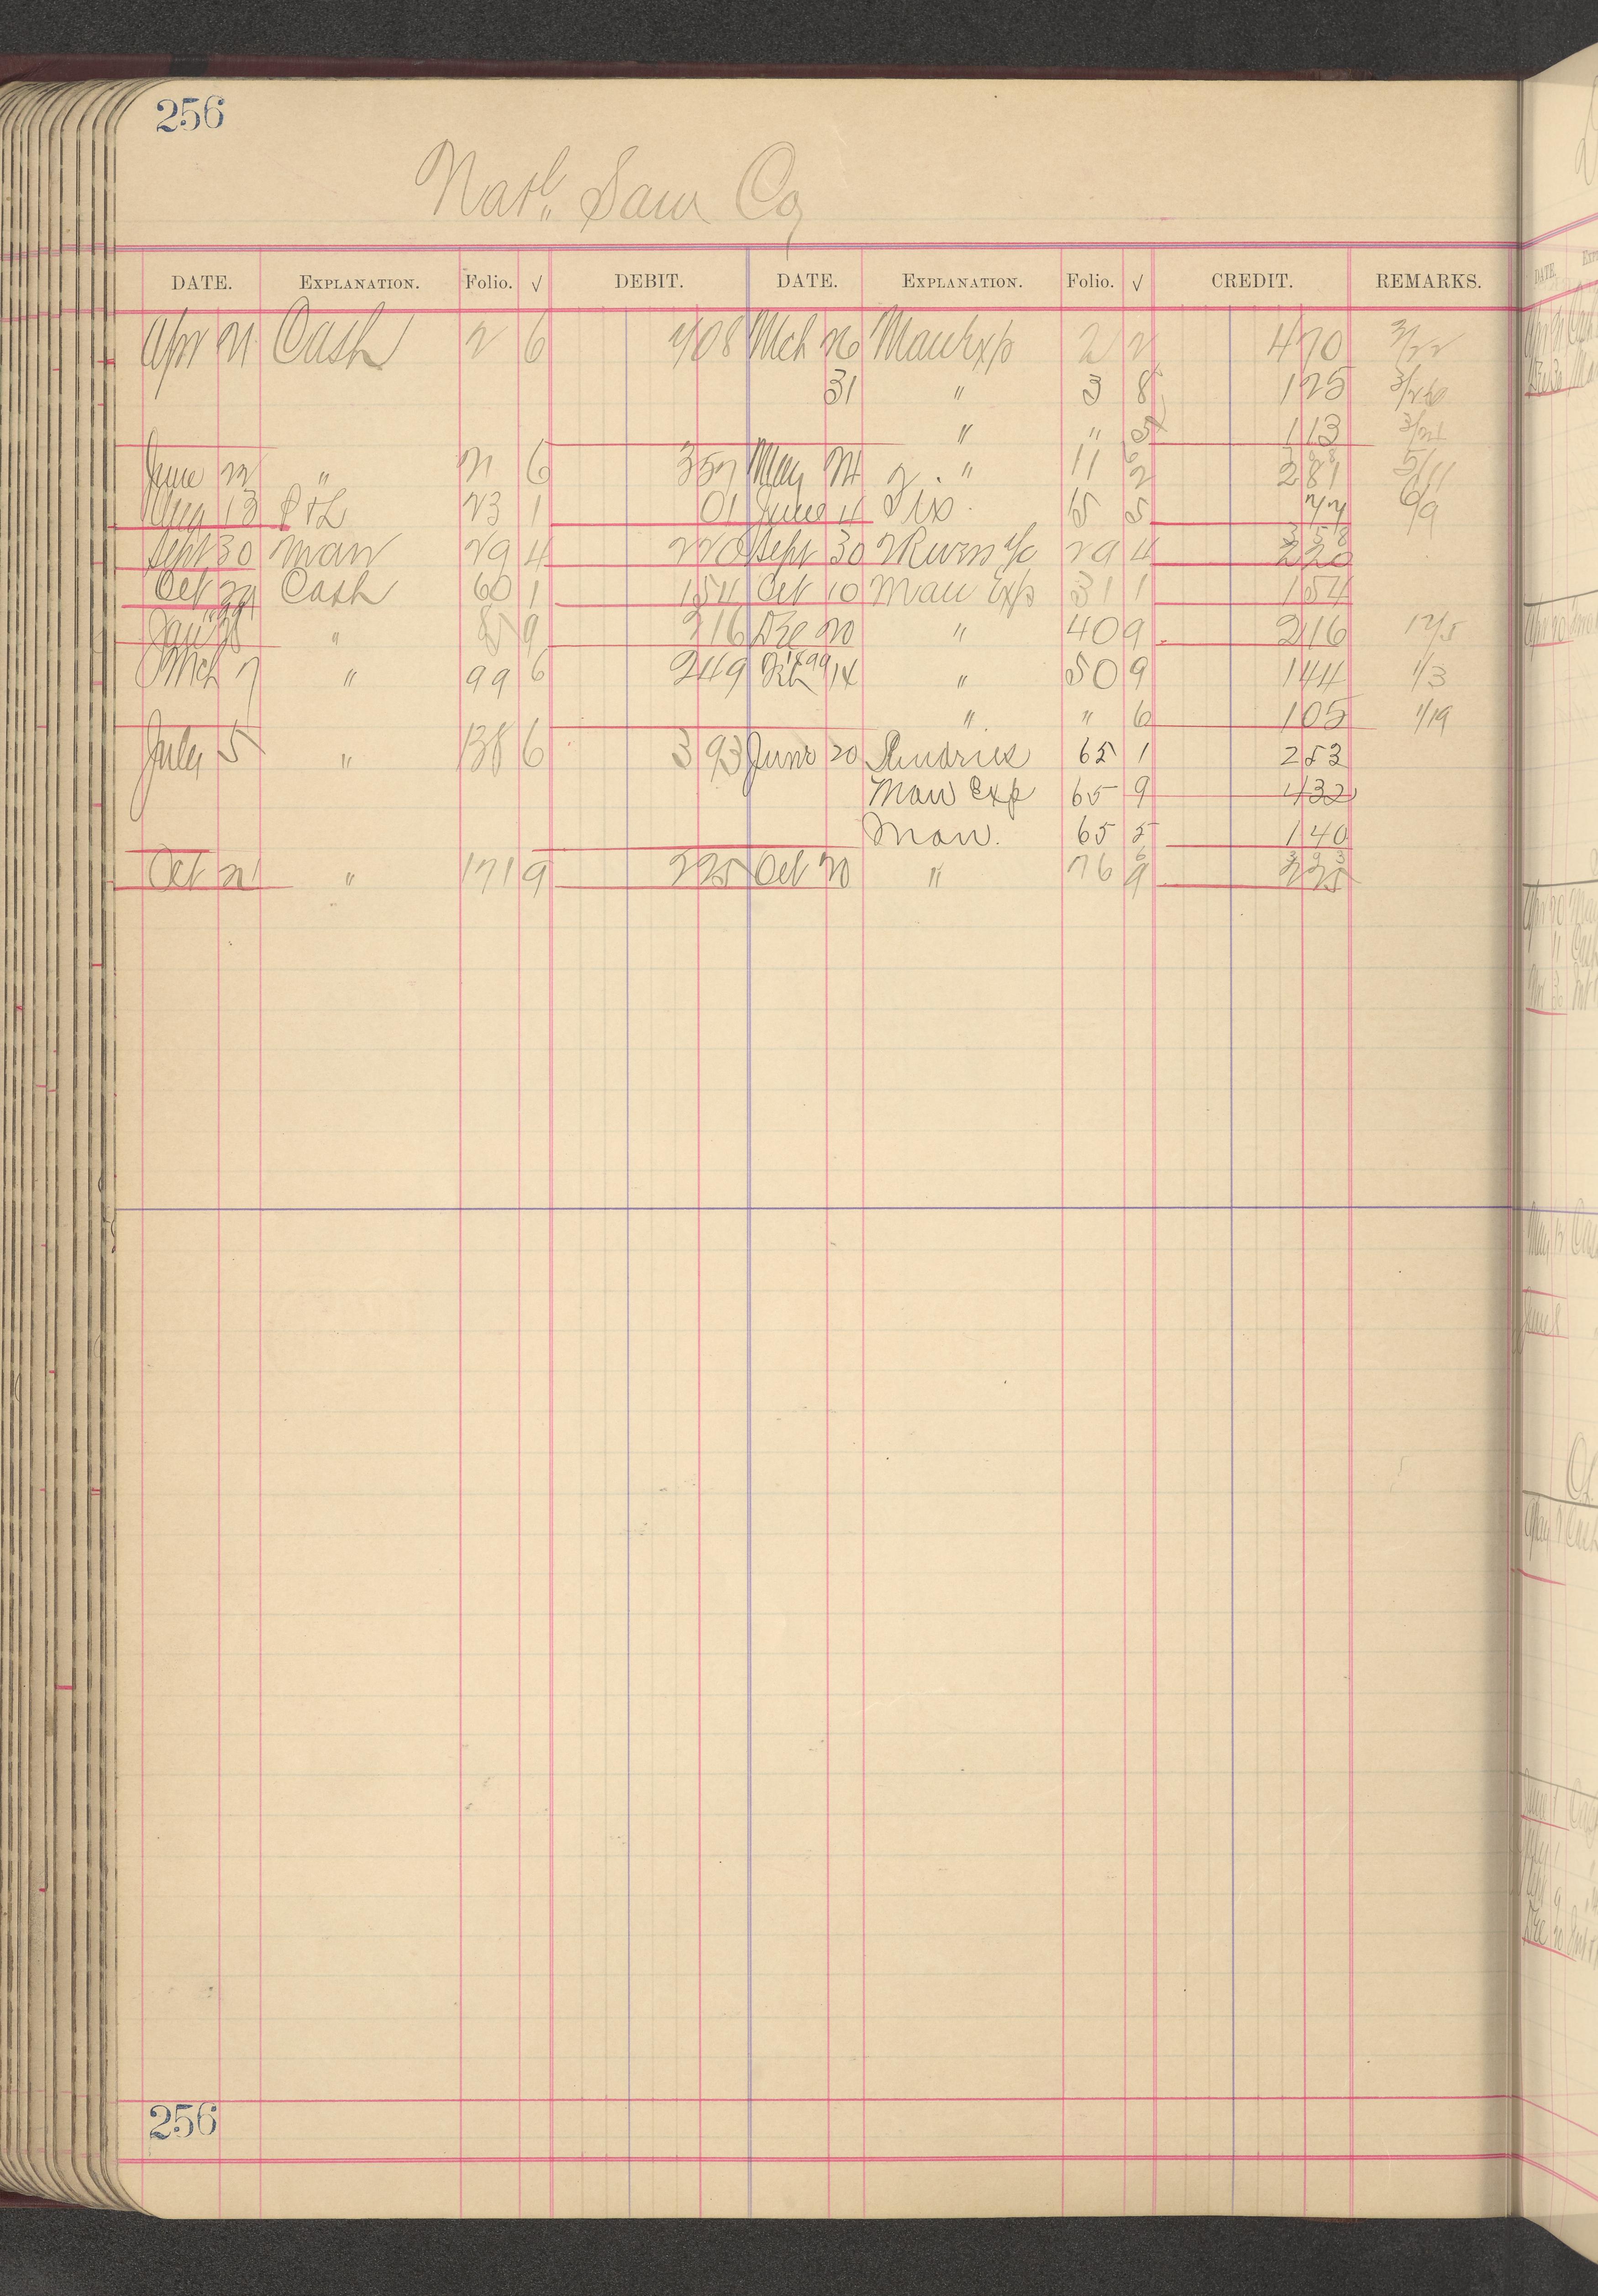 256
Natl. Saw Co
DATE. EXPLANATION. Folio. √ DEBIT. DATE. EXPLANATION. Folio. √ CREDIT. REMARKS.
Apr 21 Cash 2 6 708 Mch 26 Man Exp 2 2 470 3/22
31 " 3 8 125 3/26
" " 5 113 3/21
June 22 " 21 6 357 May 24 " 11 2 281 5/11
Aug 13 P & L 23 1 01 June 4 Fix 15 5 77 6/9
358
Sept 30 Man 29 4 220 Sept 30 29 4 220
Oct Cash 60 1 154 Oct 10 Man Exp 31 1 154
Jan " 9 216 Dec 20 " 40 9 216 12/5
Mch 7 " 99 6 249 99 14 " 50 9 144 1/3
" " 6 105 1/19
July 5 " 138 6 393 June 20 Sundries 65 1 253
Man Exp 65 9 432
Man. 65 5 140
393
Oct 21 " 171 9 225 Oct 20 " 76 9 225
256